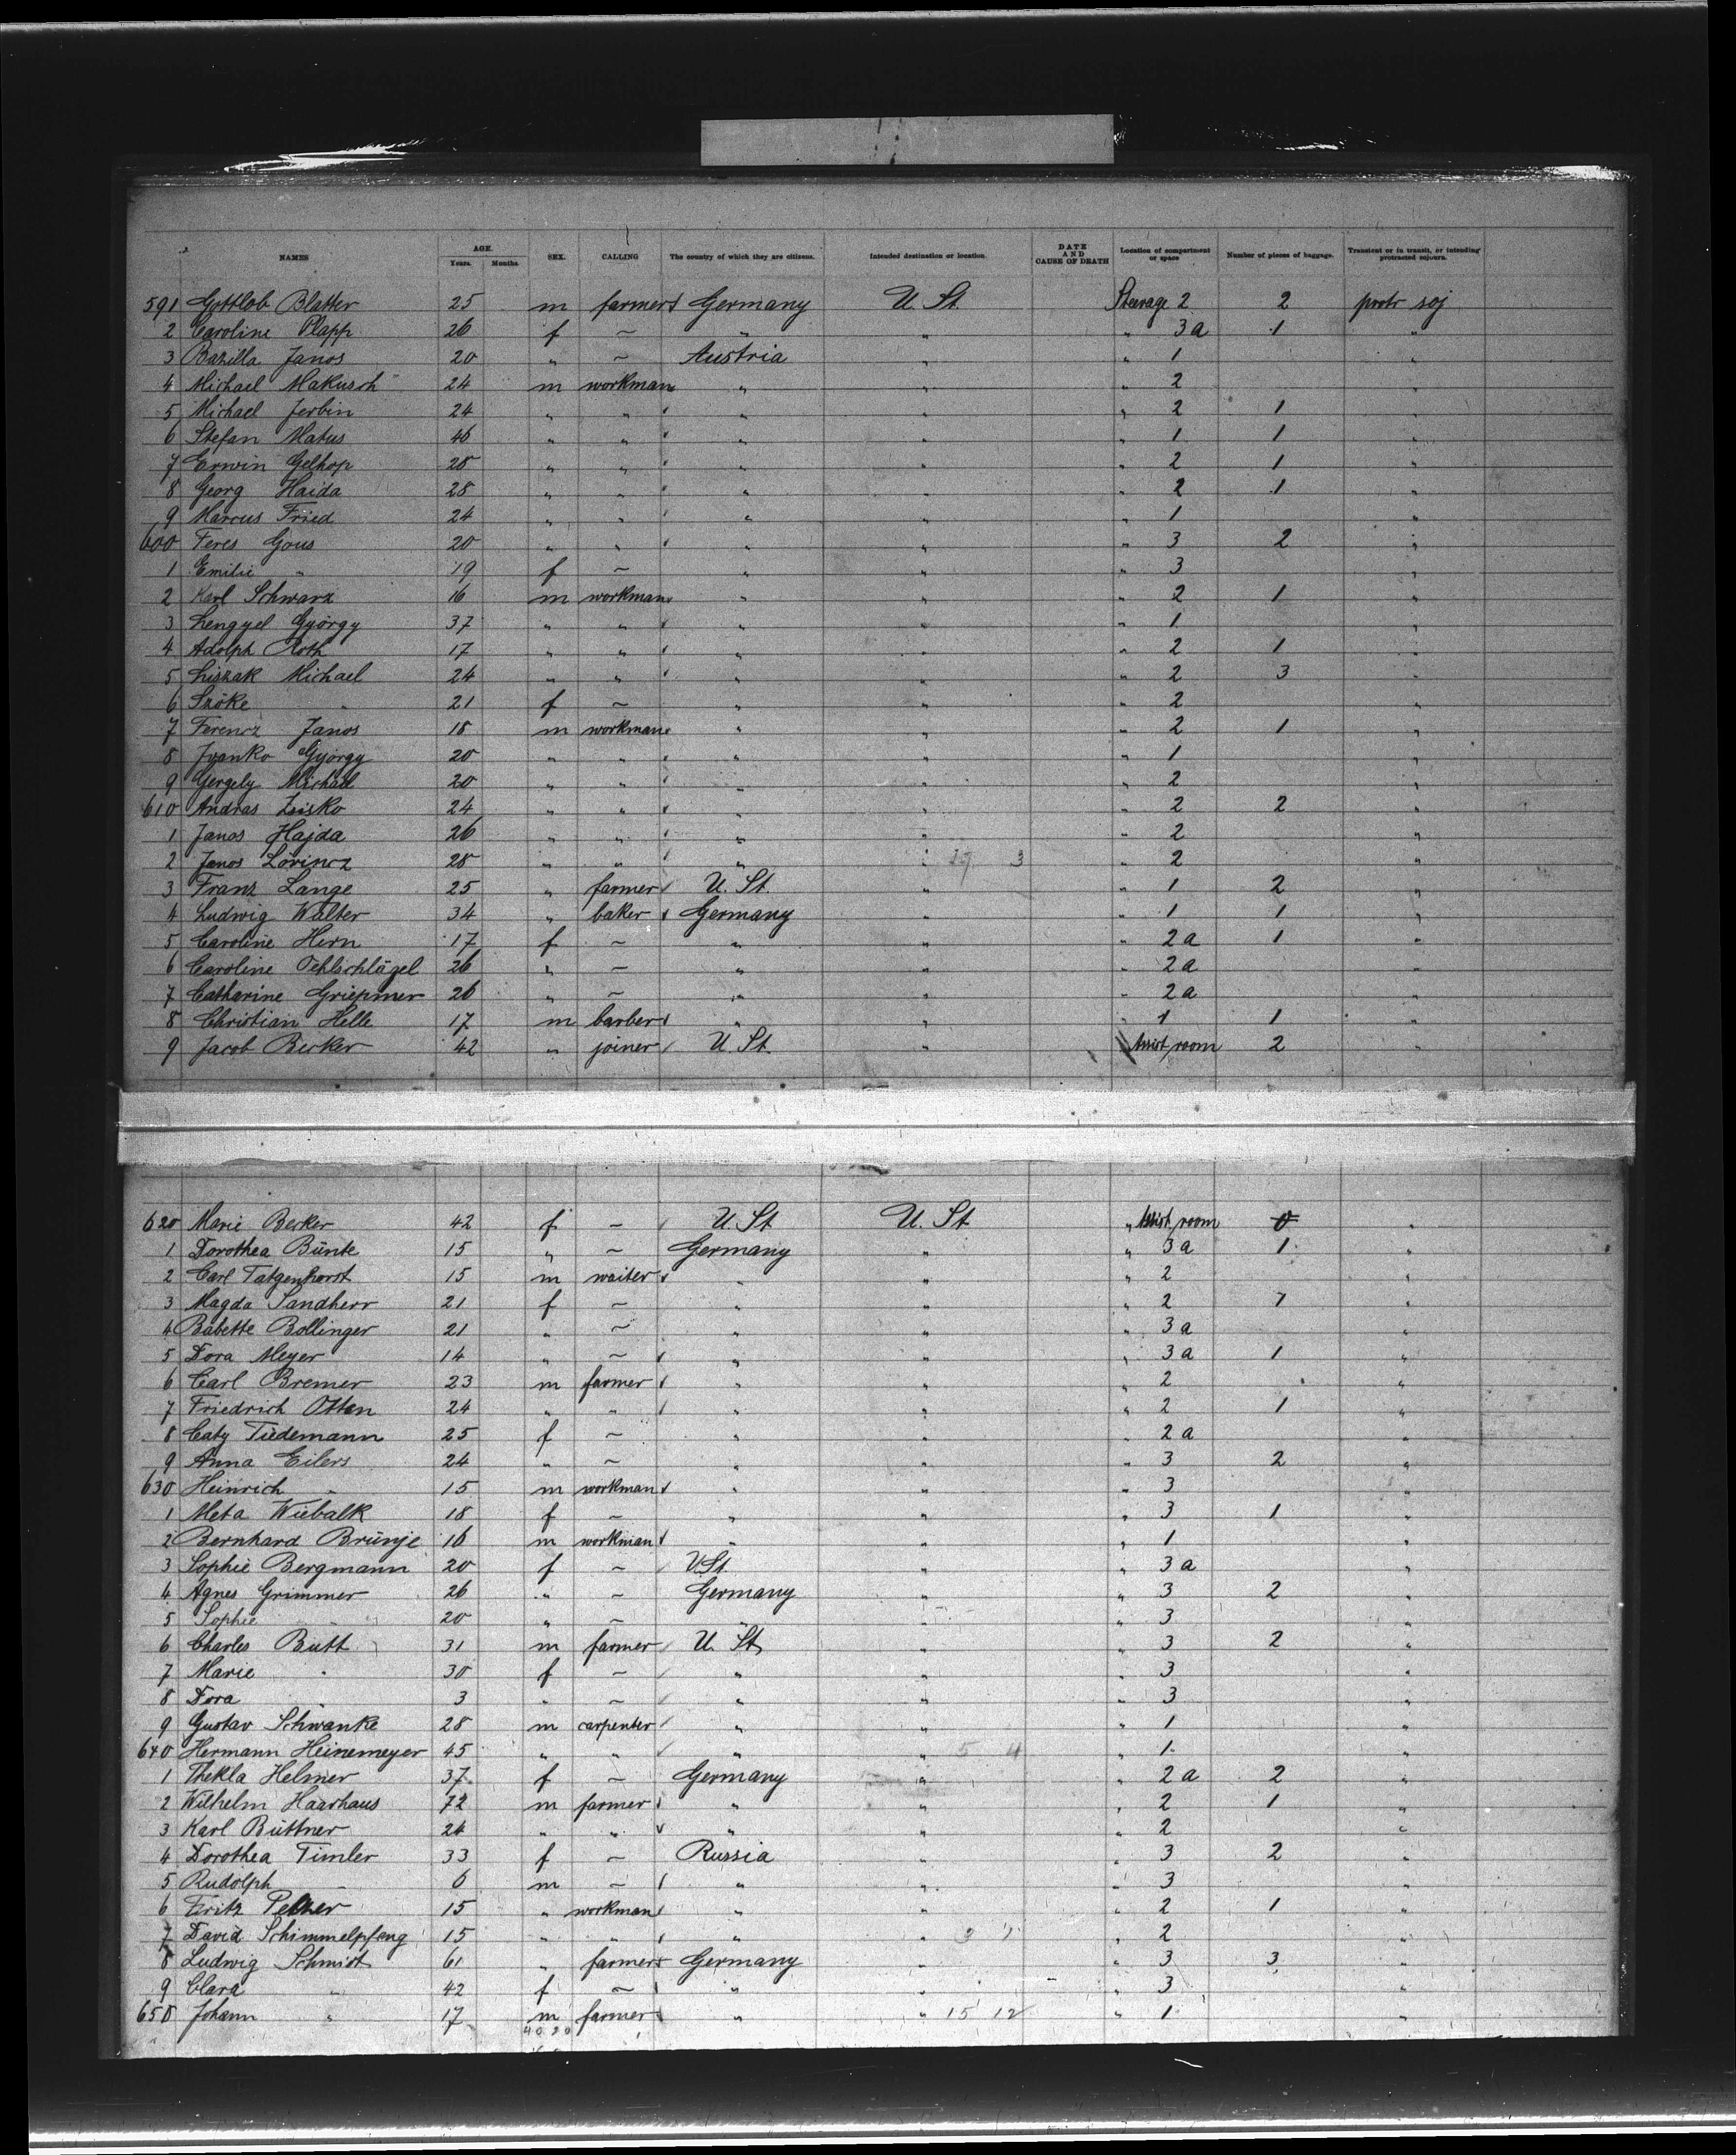 NAMES AGE. Years. Months. SEX. CALLING The country of which they are citizens. Intended destination or location. DATE AND CAUSE OF DEATH Location of compartment or space Number of pieces of baggage. Transient or in transit, or intending protracted sojourn.
591 Gottlob Blatter 25 m farmer Germany U. St. Steerage 2 2 protr soj
2 Caroline Plapp 26 f ~ " " " 3a 1 "
3 Bazilla Janos 20 " ~ Austria " " 1 "
4 Michael Makusch 24 m workman " " " 2 "
5 Michael Jerbin 24 " " " " " 2 1 "
6 Stefan Matus 46 " " " " " 1 1 "
7 Erwin Gelhop 28 " " " " " 2 1 "
8 Georg Haida 28 " " " " " 2 1 "
9 Marcus Fried 24 " " " " " 1 "
600 Feres Gous 20 " " " " " 3 2 "
1 Emilie " 19 f ~ " " " 3 "
2 Karl Schwarz 16 m workman " " " 2 1 "
3 Lengyel György 37 " " " " " 1 "
4 Adolph Roth 17 " " " " " 2 1 "
5 Liszak Michael 24 " " " " " 2 3 "
6 Szöke " 21 f ~ " " " 2 "
7 Ferencz Janos 18 m workman " " " 2 1 "
8 Ivanko György 20 " " " " " 1 "
9 Gergely Michael 20 " " " " " 2 "
610 Andras Zsisko 24 " " " " " 2 2 "
1 Janos Hajda 26 " " " " " 2 "
2 Janos Lörincz 28 " " " " 3 " 2 "
3 Franz Lange 25 " farmer U. St. " " 1 2 "
4 Ludwig Walter 34 " baker Germany " " 1 1 "
5 Caroline Hern 17 f ~ " " " 2a 1 "
6 Caroline Oehlschlägel 26 " ~ " " " 2a "
7 Catharine Griepmer 26 " ~ " " " 2a "
8 Christian Helle 17 m barber " " " 1 1 "
9 Jacob Becker 42 " joiner U St. " Assist room 2 "
620 Marie Becker 42 f ~ U. St U. St " Assist room 0 "
1 Dorothea Bünte 15 " ~ Germany " " 3a 1 "
2 Carl Tatgenhorst 15 m waiter " " " 2 "
3 Magda Sandherr 21 f ~ " " " 2 1 "
4 Babette Bollinger 21 " ~ " " " 3a "
5 Dora Meyer 14 " ~ " " " 3a 1 "
6 Carl Bremer 23 m farmer " " " 2 "
7 Friedrich Otten 24 " " " " " 2 1 "
8 Caty Tiedemann 25 f ~ " " " 2a "
9 Anna Eilers 24 " ~ " " " 3 2 "
630 Heinrich " 15 m workman " " " 3 "
1 Meta Wiebalk 18 f ~ " " " 3 1 "
2 Bernhard Brünje 16 m workman " " " 1 "
3 Sophie Bergmann 20 f ~ U.St. " " 3a "
4 Agnes Grimmer 26 " ~ Germany " " 3 2 "
5 Sophie " 20 " ~ " " " 3 "
6 Charles Butt 31 m farmer U. St. " " 3 2 "
7 Marie " 30 f ~ " " " 3 "
8 Dora " 3 " ~ " " " 3 "
9 Gustav Schwanke 28 m carpenter " " " 1 "
640 Hermann Heinemeyer 45 " " " " 5 4 " 1 "
1 Thekla Helmer 37 f ~ Germany " " 2a 2 "
2 Wilhelm Haarhaus 72 m farmer " " " 2 1 "
3 Karl Büttner 24 " " " " " 2 "
4 Dorothea Timler 33 f ~ Russia " " 3 2 "
5 Rudolph " 6 m ~ " " " 3 "
6 Fritz 15 " workman " " " 2 1 "
7 David Schimmelpfeng 15 " " " " " 2 "
8 Ludwig Schmidt 61 " farmer Germany " " 3 3 "
9 Clara " 42 f ~ " " " 3 "
650 Johann " 17 m farmer " " 15 12 " 1 "
40 20